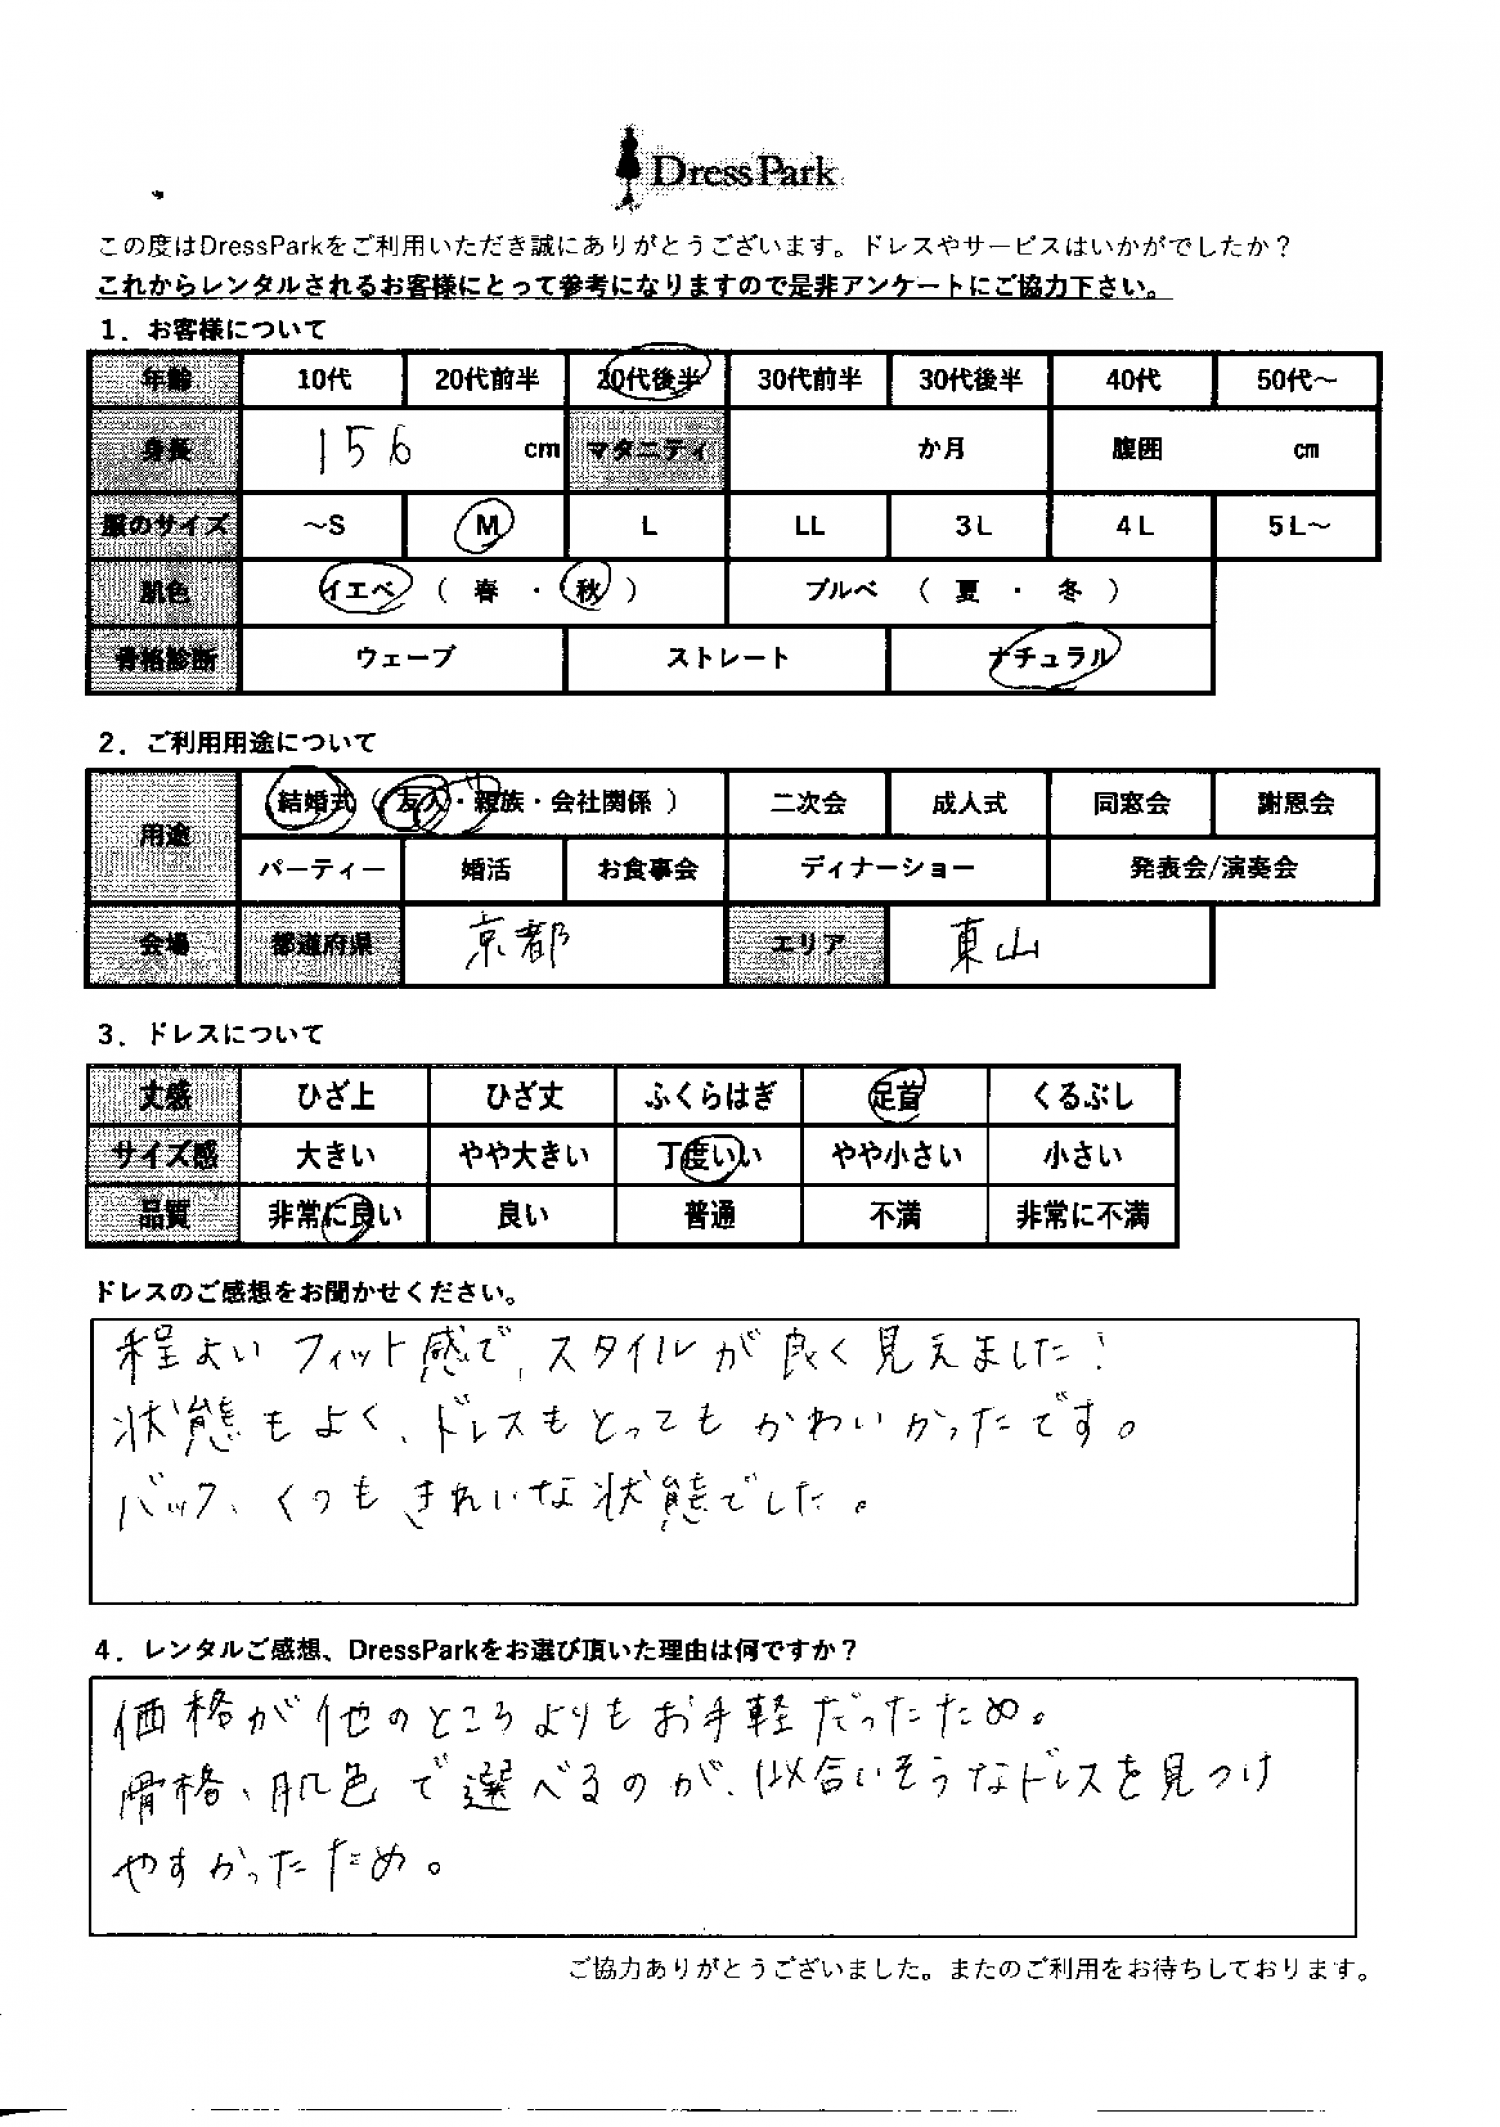 DressPark
この度はDressParkをご利用いただき誠にありがとうございます。ドレスやサービスはいかがでしたか？
これからレンタルされるお客様にとって参考になりますので是非アンケートにご協力下さい。
1．お客様について
年齢 10代 20代前半 20代後半 30代前半 30代後半 40代 50代～
身長 156 cm マタニティ か月 腹囲 cm
服のサイズ ～S M L LL 3L 4L 5L～
肌色 イエベ （ 春 ・ 秋 ） ブルベ （ 夏 ・ 冬 ）
骨格診断 ウェーブ ストレート ナチュラル
2．ご利用用途について
用途 結婚式（ 友人・親族・会社関係 ） 二次会 成人式 同窓会 謝恩会
パーティー 婚活 お食事会 ディナーショー 発表会/演奏会
会場 都道府県 京都 エリア 東山
3．ドレスについて
丈感 ひざ上 ひざ丈 ふくらはぎ 足首 くるぶし
サイズ感 大きい やや大きい 丁度いい やや小さい 小さい
品質 非常に良い 良い 普通 不満 非常に不満
ドレスのご感想をお聞かせください。
程よいフィット感で、スタイルが良く見えました！
状態もよく、ドレスもとってもかわいかったです。
バック、くつもきれいな状態でした。
4．レンタルご感想、DressParkをお選び頂いた理由は何ですか？
価格が他のところよりもお手軽だったため。
骨格、肌色で選べるのが、似合いそうなドレスを見つけ
やすかったため。
ご協力ありがとうございました。またのご利用をお待ちしております。